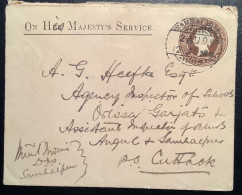 ON HIS MAJESTY'S SERVICE
A. G. Heefke Esqre
Agency Inspector of Schools
Orissa Garjats &
Assistant Inspector of Schools
Angul & Sambalpur
P.O. Cuttack
Sambalpur